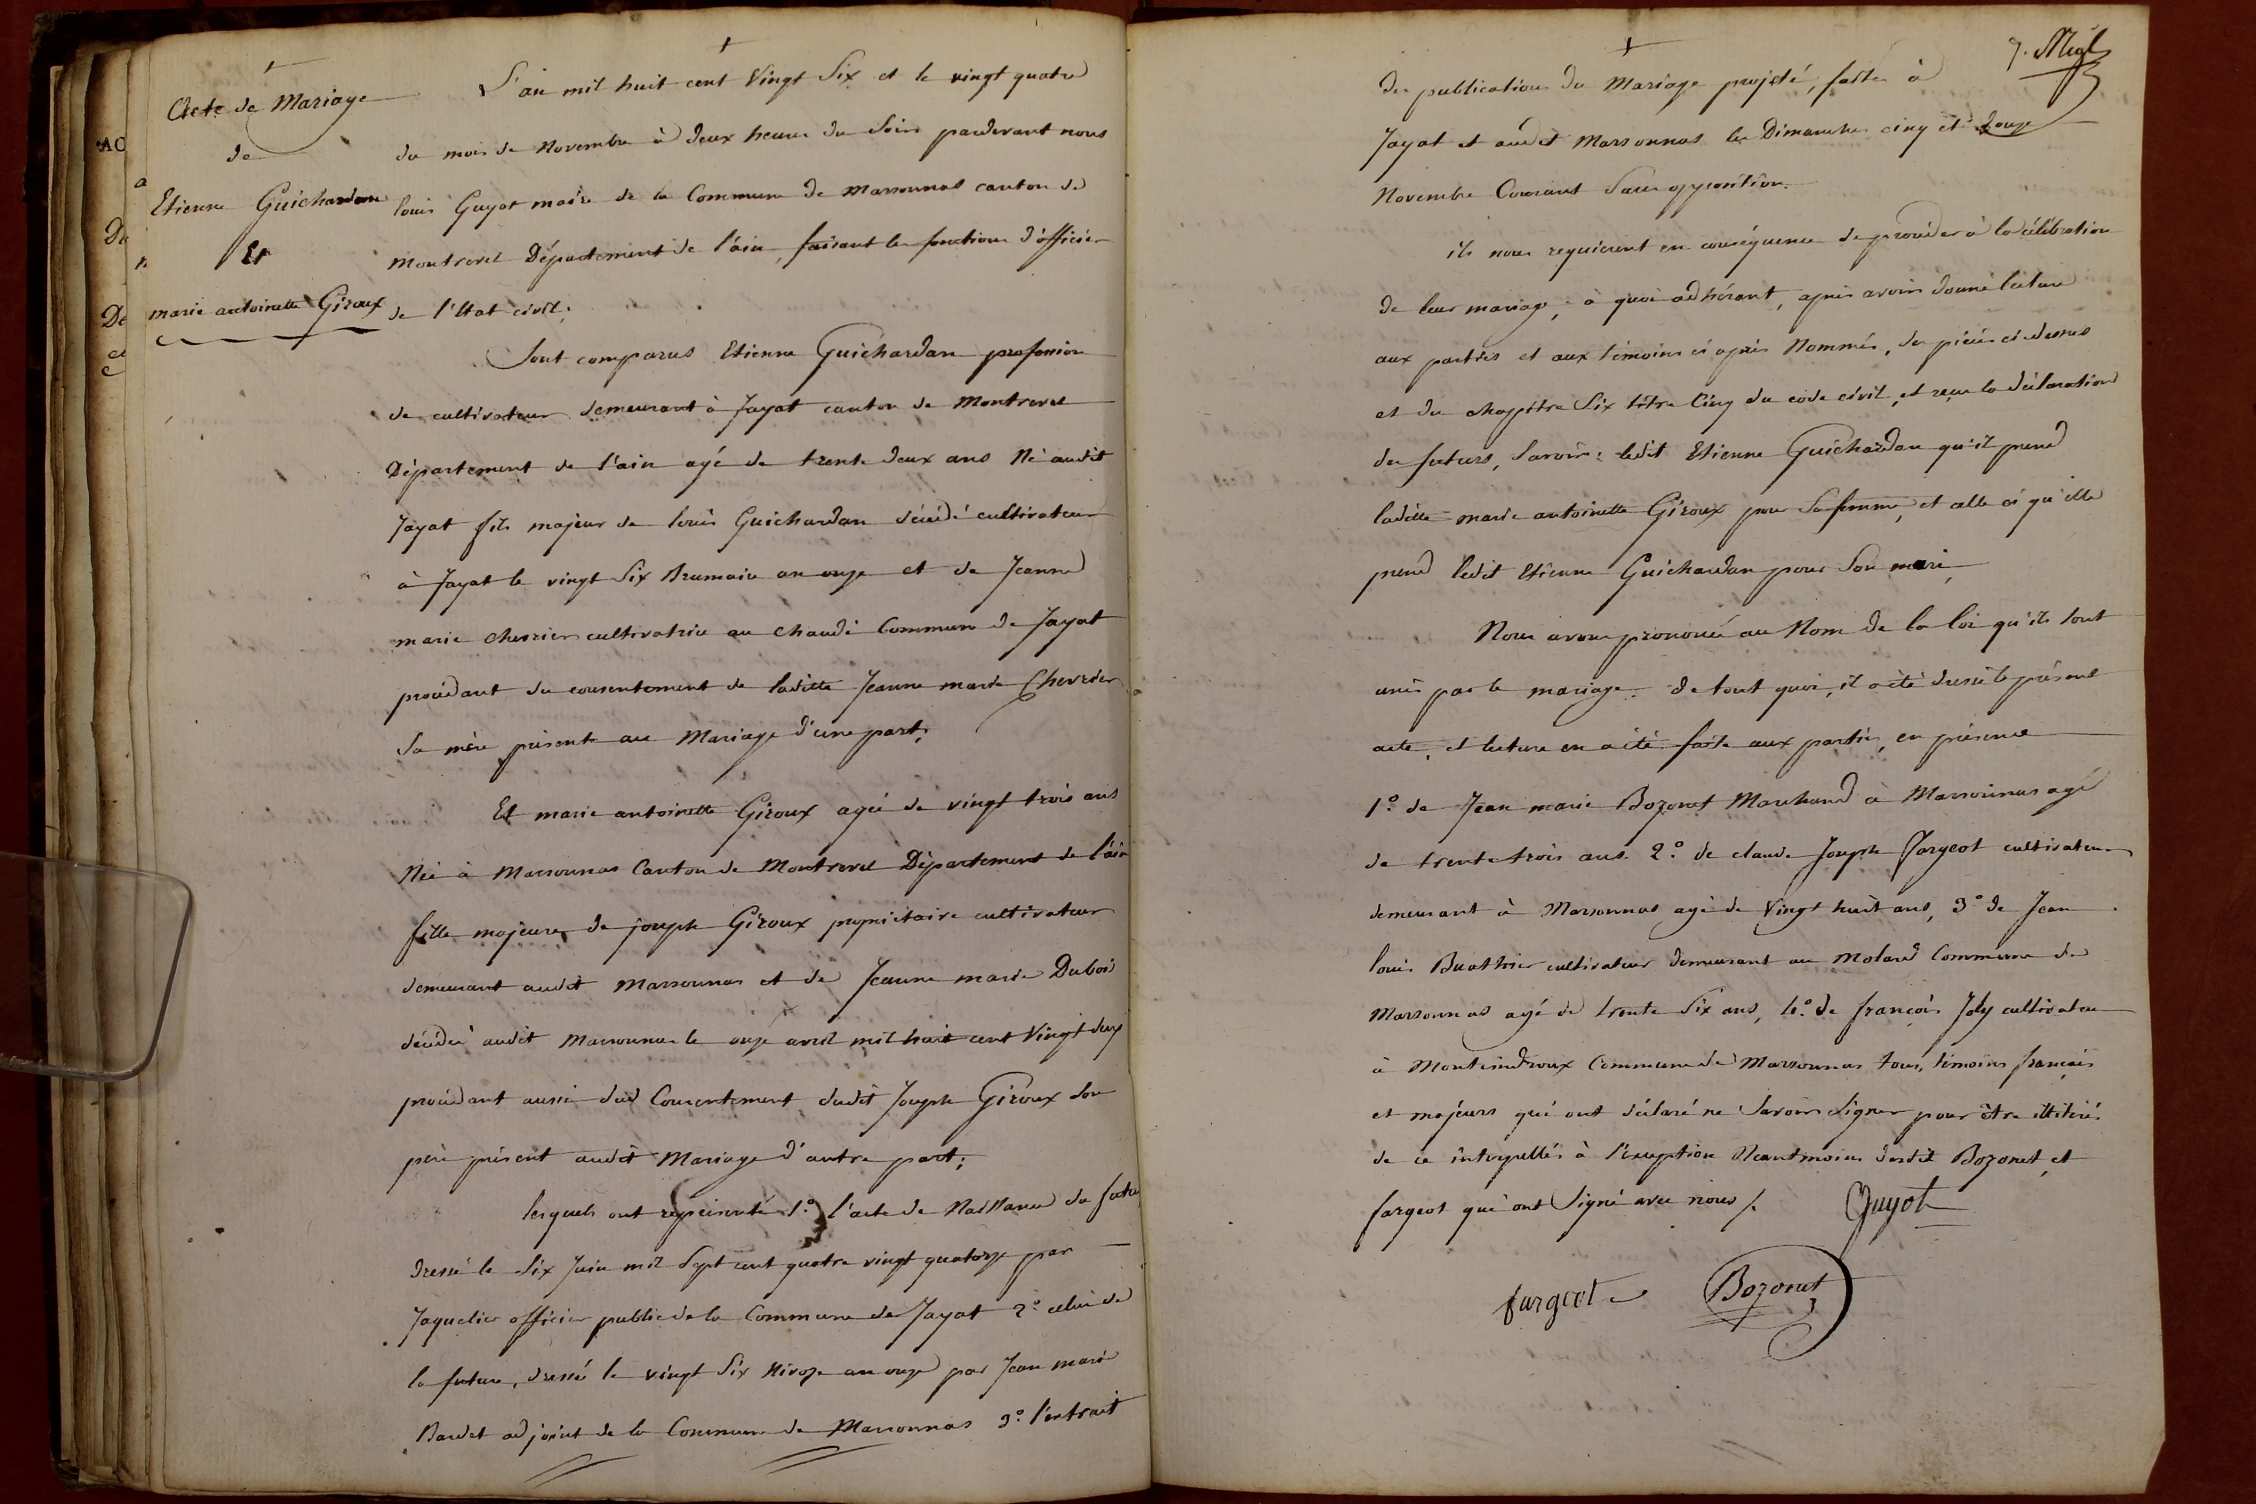 Acte de Mariage
de
Etienne Guichardan
Et
marie antoinette Giroux
L'an mil huit cent Vingt Six et le vingt quatre
du mois de Novembre à deux heures du Soir pardevant nous
louis Guyot maire de la Commune de Marsonnas canton de
Montrevel Département de l'ain, faisant les fonctions d'officier
de l'Etat civil.
Sont comparus Etienne Guichardan profession
de cultivateur demeurant à Jayat canton de Montrevel
Département de l'ain agé de trente deux ans Né audit
Jayat fils majeur de louis Guichardan décédé cultivateur
à Jayat le vingt Six Brumaire an onze et de Jeanne
marie chevrier cultivatrice au chaudé Commune de Jayat
procédant du consentement de laditte Jeanne marie Chevrier
Sa mère présente au Mariage d'une part;
Et marie antoinette Giroux agée de vingt trois ans
Née à Marsonnas Canton de Montrevel Département de l'ain
fille majeure de joseph Giroux propriétaire cultivateur
demeurant audit Marsonnas et de Jeanne marie Dubois
décédée audit Marsonnas le onze avril mil huit cent Vingt deux
procédant aussi du Consentement dudit Joseph Giroux son
père présent audit Mariage d'autre part;
lesquels ont représenté 1.º l'acte de Naissance du futur
dressé le Six Juin mil Sept cent quatre vingt quatorze par
Jaquelier officier public de la Commune de Jayat 2.º celui de
la future, dressé le vingt Six Nivoze an onze par Jean marie
Bardet adjoint de la Commune de Marsonnas 3.º l'extrait
7.
des publications du Mariage projeté, faites à
Jayat et audit Marsonnas les Dimanches cinq et douze
Novembre Courant Sans opposition.
ils nous requierent en conséquence de procéder à la célébration
de leur mariage, à quoi adhérant, après avoir donné lecture
aux parties et aux témoins ci après Nommés, des pièces ci dessus
et du chapitre Six titre Cinq du code civil, et reçu la déclaration
des futurs, Savoir: ledit Etienne Guichardan qu'il prend
laditte marie antoinette Giroux pour Sa femme, et celle ci qu'elle
prend ledit Etienne Guichardan pour Son mari,
Nous avons prononcé au Nom de la loi qu'ils sont
unis par le mariage. de tout quoi, il a été dressé le présent
acte, et lecture en a été faite aux parties, en présence
1.º de Jean marie Bozonet Marchand à Marsonnas agé
de trente trois ans. 2.º de claude Joseph fargeot cultivateur
demeurant à Marsonnas agé de Vingt huit ans, 3.º de Jean
louis Buathier cultivateur demeurant au Molard Commune de
Marsonnas agé de trente Six ans, 4.º de françois Joly cultivateur
à Commune de Marsonnas tous, témoins français
et majeurs qui ont déclaré ne Savoir Signer pour être illitérés
de ce interpellés à l'exception Neantmoins desdit Bozonet, et
fargeot qui ont Signé avec nous /.
Guyot
fargeot
Bozonet